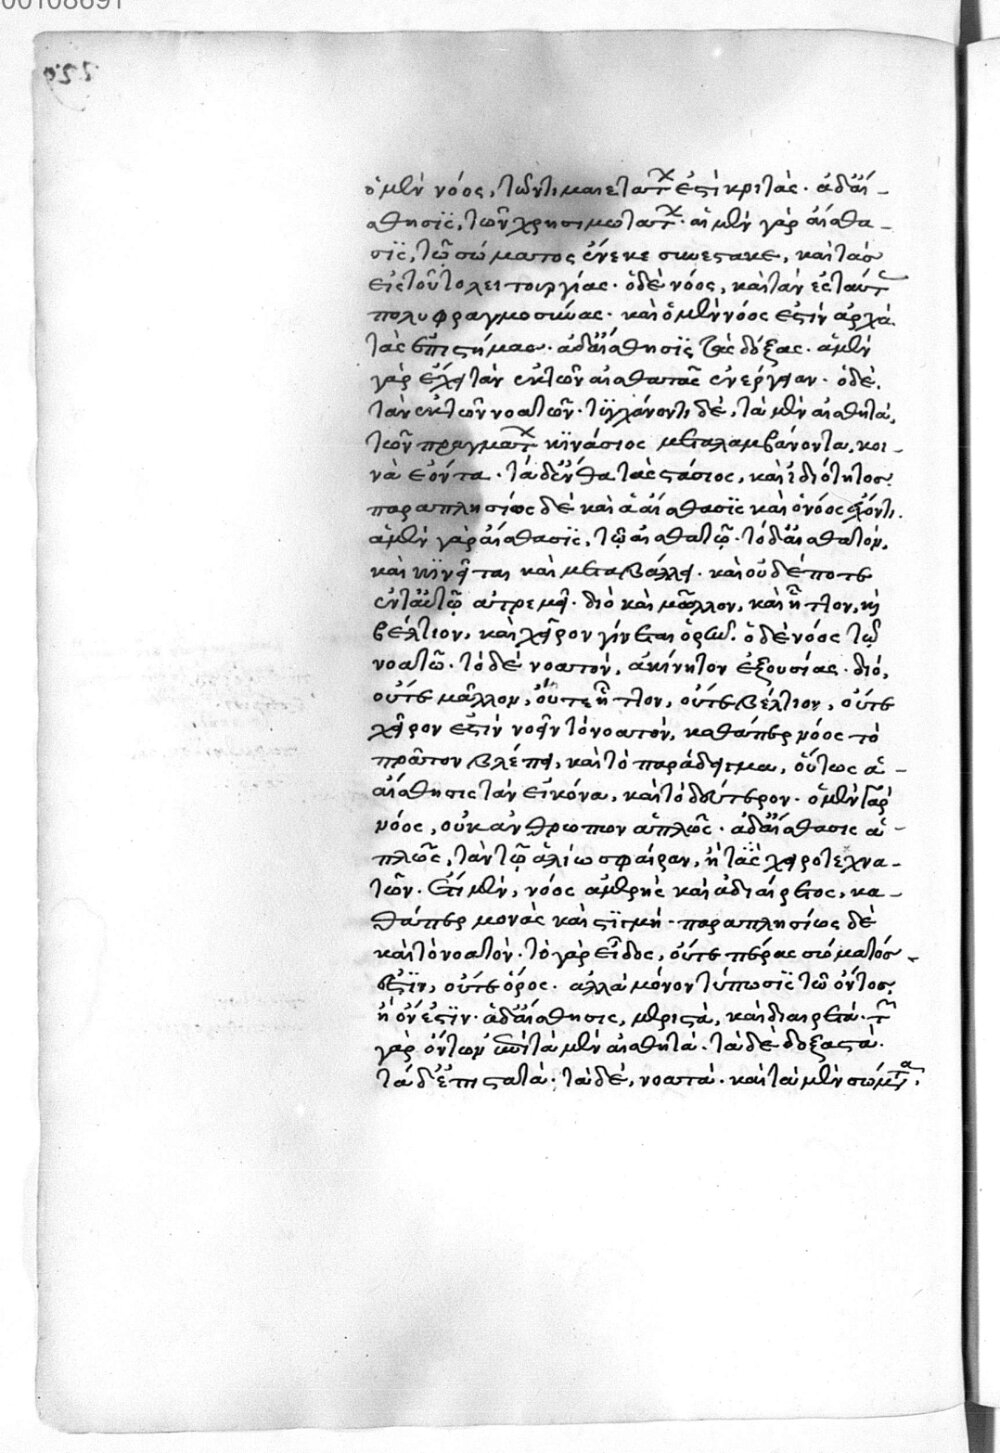 00108691
229
ὁ μὲν νόος, τῶν τιμαιετάτ ἐστὶ κριτάς· ἁ δ' αἴ-
αθησις, τῶν χρησιμωτάτ· αἱ μὲν γὰρ αἰσθα-
σις, τῶ σώματος ἕνεκε συνέστακε, καὶ τὰν
εἰς τοῦτο λειτουργίας· ὁ δὲ νόος, καὶ τὰν ἐς ταύτ
πολυφραγμοσύνας· καὶ ὁ μὲν νόος ἐστὶν ἀρχὰ
τᾶς ἐπιστήμας· ἁ δ' αἴσθησις τᾶς δόξας· ἁ μὲν
γὰρ ἔχει τὰν ἐκ τῶν αἰσθατᾶς ἐνέργειαν· ὁ δὲ,
τὰν ἐκ τῶν νοατῶν· τυγχάνοντι δὲ, τὰ μὲν αἰσθητά,
τῶν πραγμάτ κινάσιος μεταλαμβάνοντα, κοι-
νὰ ἐόντα· τὰ δ' ἔνθα τᾶς στάσιος, καὶ ἰδιότητος·
παραπλησίως δὲ καὶ ἁ αἴσθασις καὶ ὁ νόος ἔχοντι.
ἁ μὲν γὰρ αἴσθασις, τῶ αἰσθατῶ· τὸ δ' αἰσθατὸν,
καὶ κινεῖται καὶ μεταβάλλει· καὶ οὐδέποτε
ἐν ταὐτῶ ἀτρεμεῖ· διὸ καὶ μᾶλλον, καὶ ἧττον, κὴ
βέλτιον, καὶ χεῖρον γίνεται ὁρῶ· ὁ δὲ νόος τῶ
νοατῶ· τὸ δὲ νοατὸν, ἀκίνητον ἐξουσίας· διό,
οὔτε μᾶλλον, οὔτε ἧττον, οὔτε βέλτιον, οὔτε
χεῖρον ἐστὶν νοεῖν τὸ νοατὸν, καθάπερ νόος τὸ
πρᾶτον βλέπει, καὶ τὸ παράδειγμα, οὕτως ἁ-
αἴσθησις τὰν εἰκόνα, καὶ τὸ δεύτερον· ὁ μὲν γὰρ
νόος, οὐκ ἀνθρωπον ἁπλῶς· ἁ δ' αἴσθασις ἁ-
πλῶς, τὰν τῶ ἁλίω σφαίραν, ἢ τὰς χειροτεχνα-
τῶν· ἔτι μὲν, νόος ἀμερὴς καὶ ἀδιαίρετος, κα-
θάπερ μονὰς καὶ στιγμή· παραπλησίως δὲ
καὶ τὸ νοατὸν· τὸ γὰρ εἶδος, οὔτε πέρας σώματός-
ἐστιν, οὔτε ὅρος· ἀλλὰ μόνον τύπωσις τῶ ὄντος,
ἢ ὄν ἐστιν· ἁ δ' αἴσθησις, μεριστὰ, καὶ διαιρετά· τ
γὰρ ὄντων ἐντὶ τὰ μὲν αἰσθητά· τὰ δὲ δοξαστὰ·
τὰ δ' ἐπιστατά· τὰ δὲ, νοατά· καὶ τὰ μὲν σώματα,